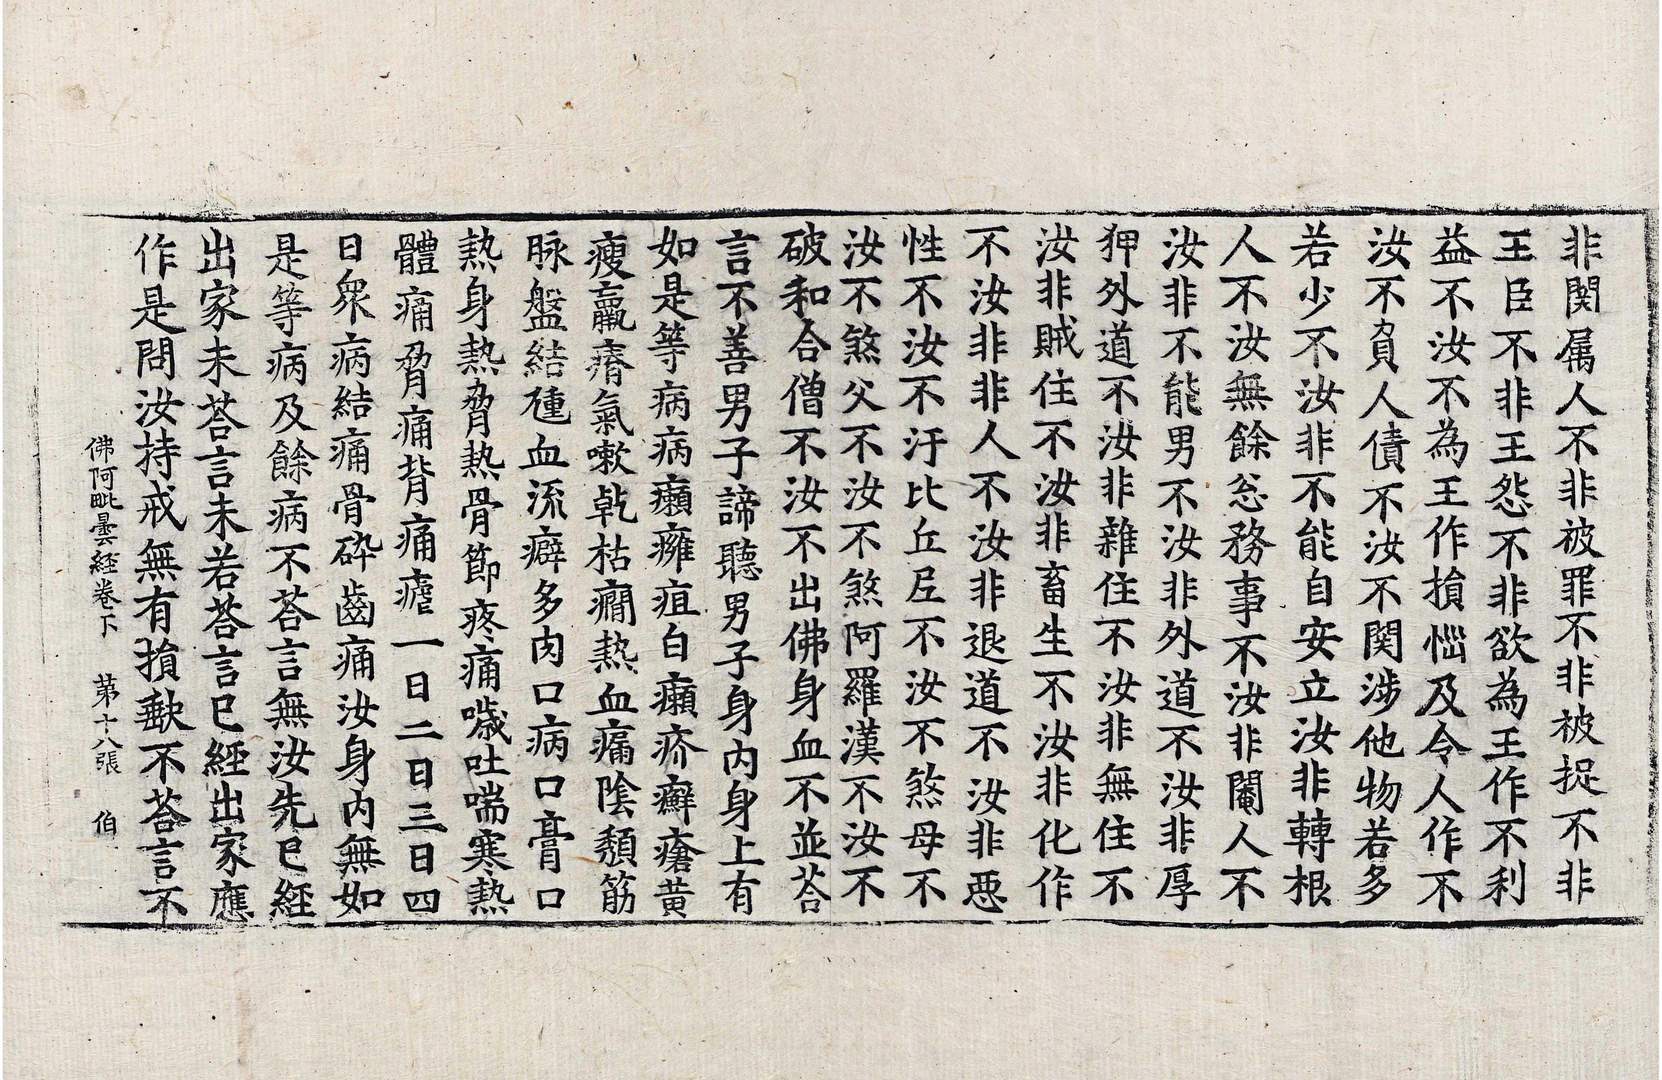 非関属人不非被罪不非被捉不非
王臣不非王怨不非欲為王作不利
益不汝不為王作損惱及令人作不
汝不負人債不汝不関涉他物若多
若少不汝非不能自安立汝非轉根
人不汝無餘忩務事不汝非閹人不
汝非不能男不汝非外道不汝非厚
狎外道不汝非雜住不汝非無住不
汝非賊住不汝非畜生不汝非化作
不汝非非人不汝非退道不汝非惡
性不汝不汙比丘尼不汝不煞母不
汝不煞父不汝不煞阿羅漢不汝不
破和合僧不汝不出佛身血不並荅
言不善男子諦聽男子身內身上有
如是等病病癩癰疽白癩疥癬瘡黃
瘦羸瘠氣嗽乹枯癎熱血痛陰頹筋
脉盤結瘇血流癖多肉口病口膏口
熱身熱脅熱骨節疼痛噦吐喘寒熱
體痛脅痛背痛瘧一日二日三日四
日衆病結痛骨碎齒痛汝身內無如
是等病及餘病不荅言無汝先巳經
出家未荅言未若荅言巳經出家應
作是問汝持戒無有損歟不荅言不
佛阿毗曇経卷下 第十八張 伯